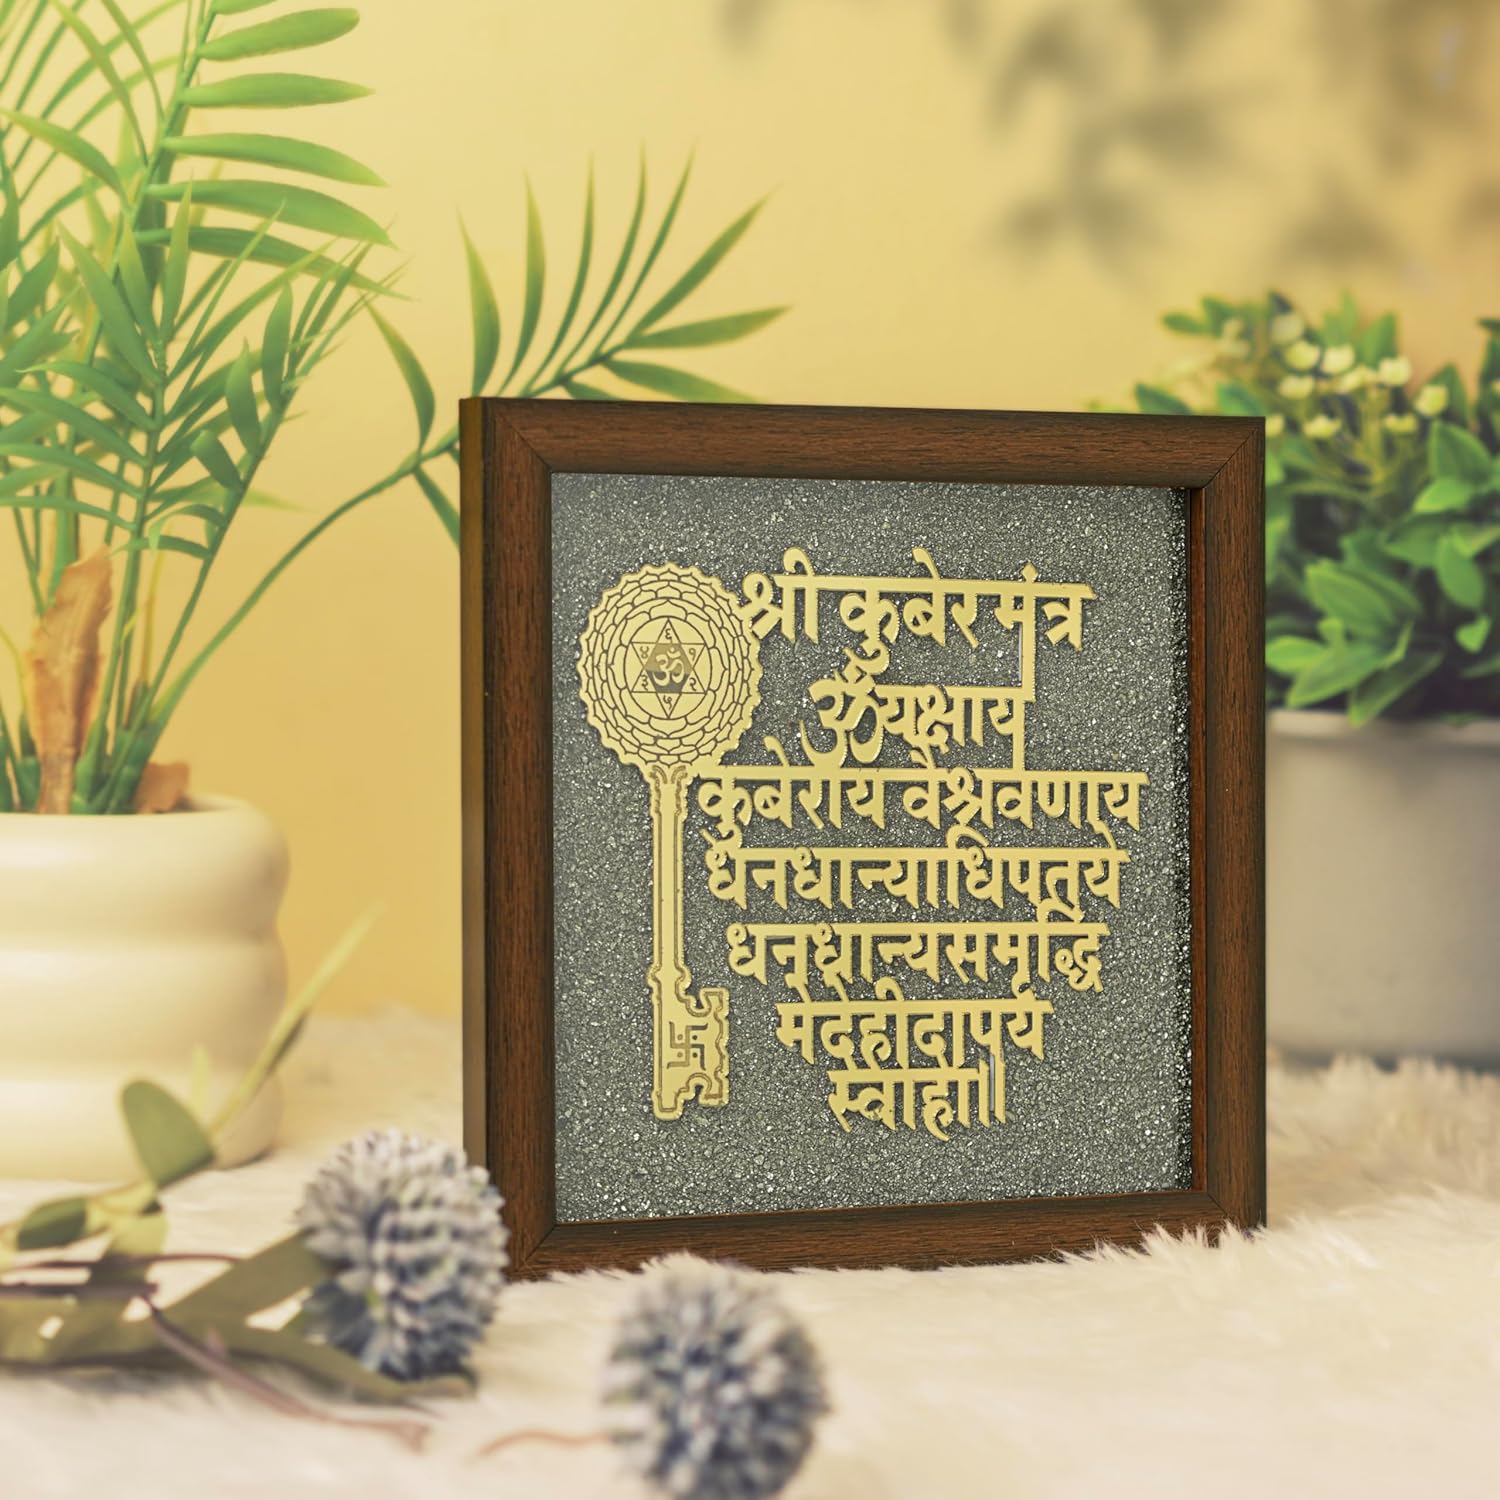 श्री कुबेरमंत्र
ॐ
ॐयक्षाय
कुबेराय वैश्रवणाय
धनधान्याधिपतये
धनधान्यसमृद्धि
मेदेहीदापय
स्वाहा॥